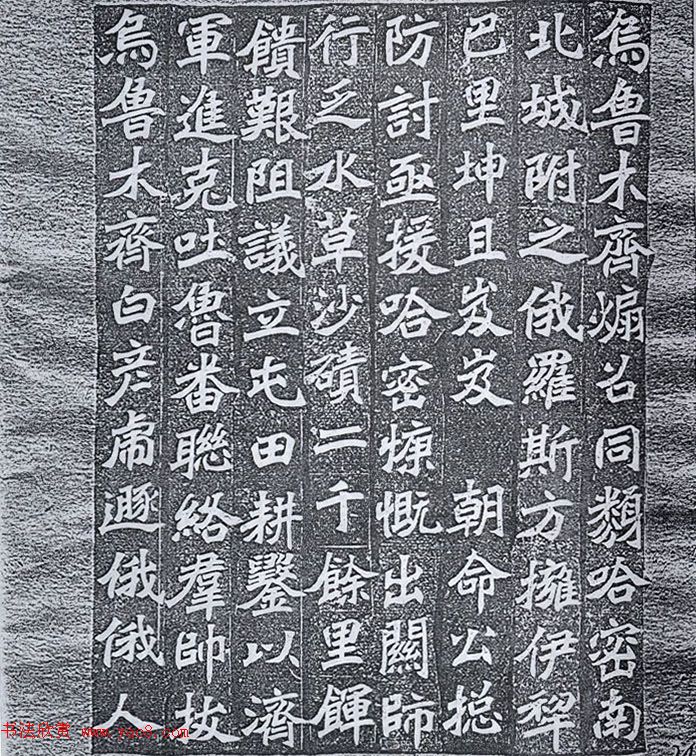 烏魯木齊煽召同類哈密南
北城附之俄羅斯方擁伊犂
巴里坤且岌岌 朝命公摠
防討亟援哈密慷慨出關師
行乏水草沙磧二千餘里餫
饋艱阻議立屯田耕鑿以濟
軍進克吐魯番聯絡羣帥拔
烏魯木齊白彥虎遯俄俄人
书法欣赏 www.yac8.com